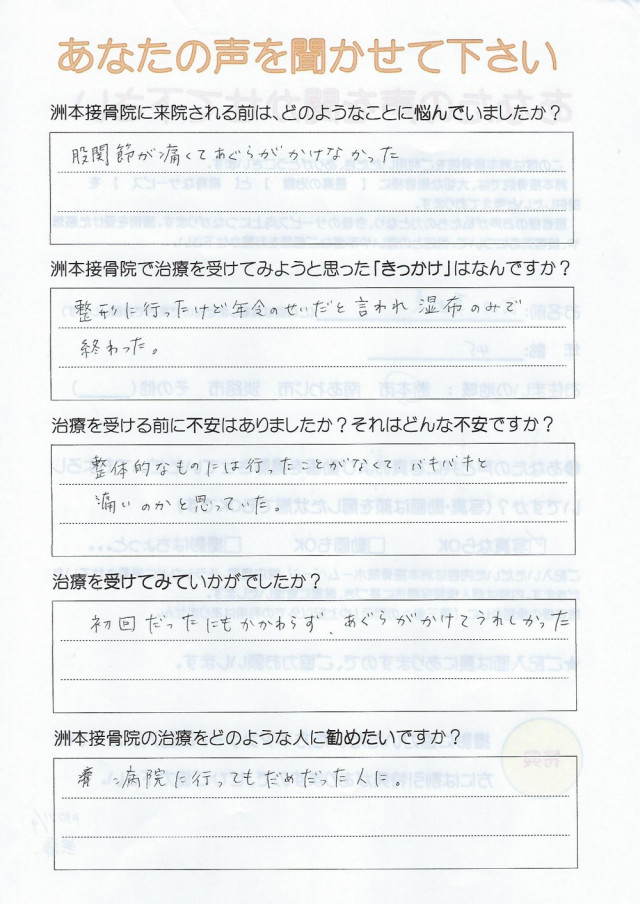 あなたの声を聞かせて下さい
洲本接骨院に来院される前は、どのようなことに悩んでいましたか？
股関節が痛くてあぐらがかけなかった
洲本接骨院で治療を受けてみようと思った「きっかけ」はなんですか？
整形に行ったけど年令のせいだと言われ湿布のみで
終わった。
治療を受ける前に不安はありましたか？それはどんな不安ですか？
整体的なものには行ったことがなくて、バキバキと
痛いのかと思っていた。
治療を受けてみていかがでしたか？
初回だったにもかかわらず、あぐらがかけてうれしかった
洲本接骨院の治療をどのような人に勧めたいですか？
病院に行ってもだめだった人に。